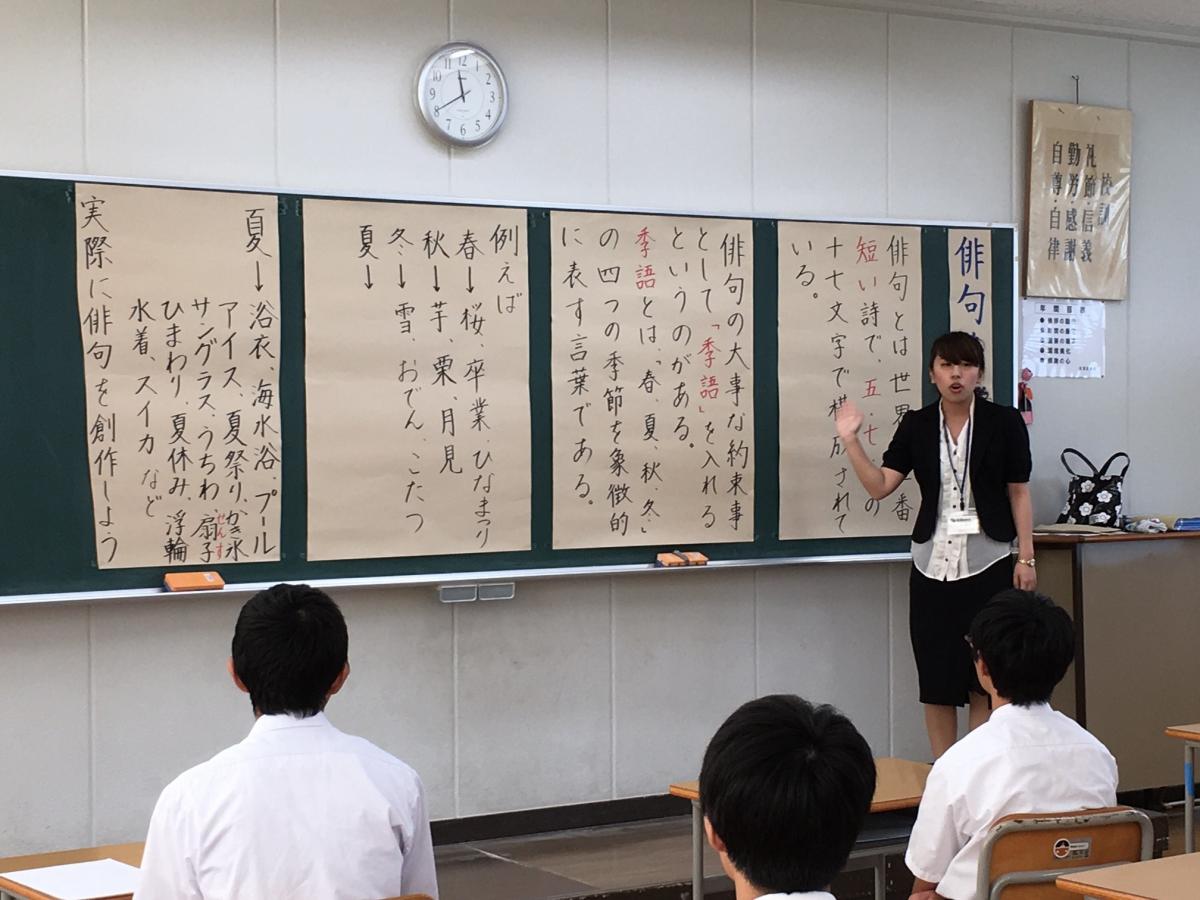 俳句
俳句とは世界
番
短い詩で、五・七・
の
十七文字で構成されて
いる。
俳句の大事な約束事
として「季語」を入れる
というのがある。
季語とは、「春、夏、秋、冬」
の四つの季節を象徴的
に表す言葉である。
例えば
春→桜、卒業、ひなまつり
秋→芋、栗、月見
冬→雪、おでん、こたつ
夏→
夏→浴衣、海水浴、プール
アイス、夏祭り、かき氷
サングラス、うちわ、扇子
せんす
ひまわり、夏休み、浮輪
水着、スイカ など
実際に俳句を創作しよう
校訓
礼節・信義
勤労・感謝
自尊・自律
12
1
2
3
4
5
6
7
8
9
10
11